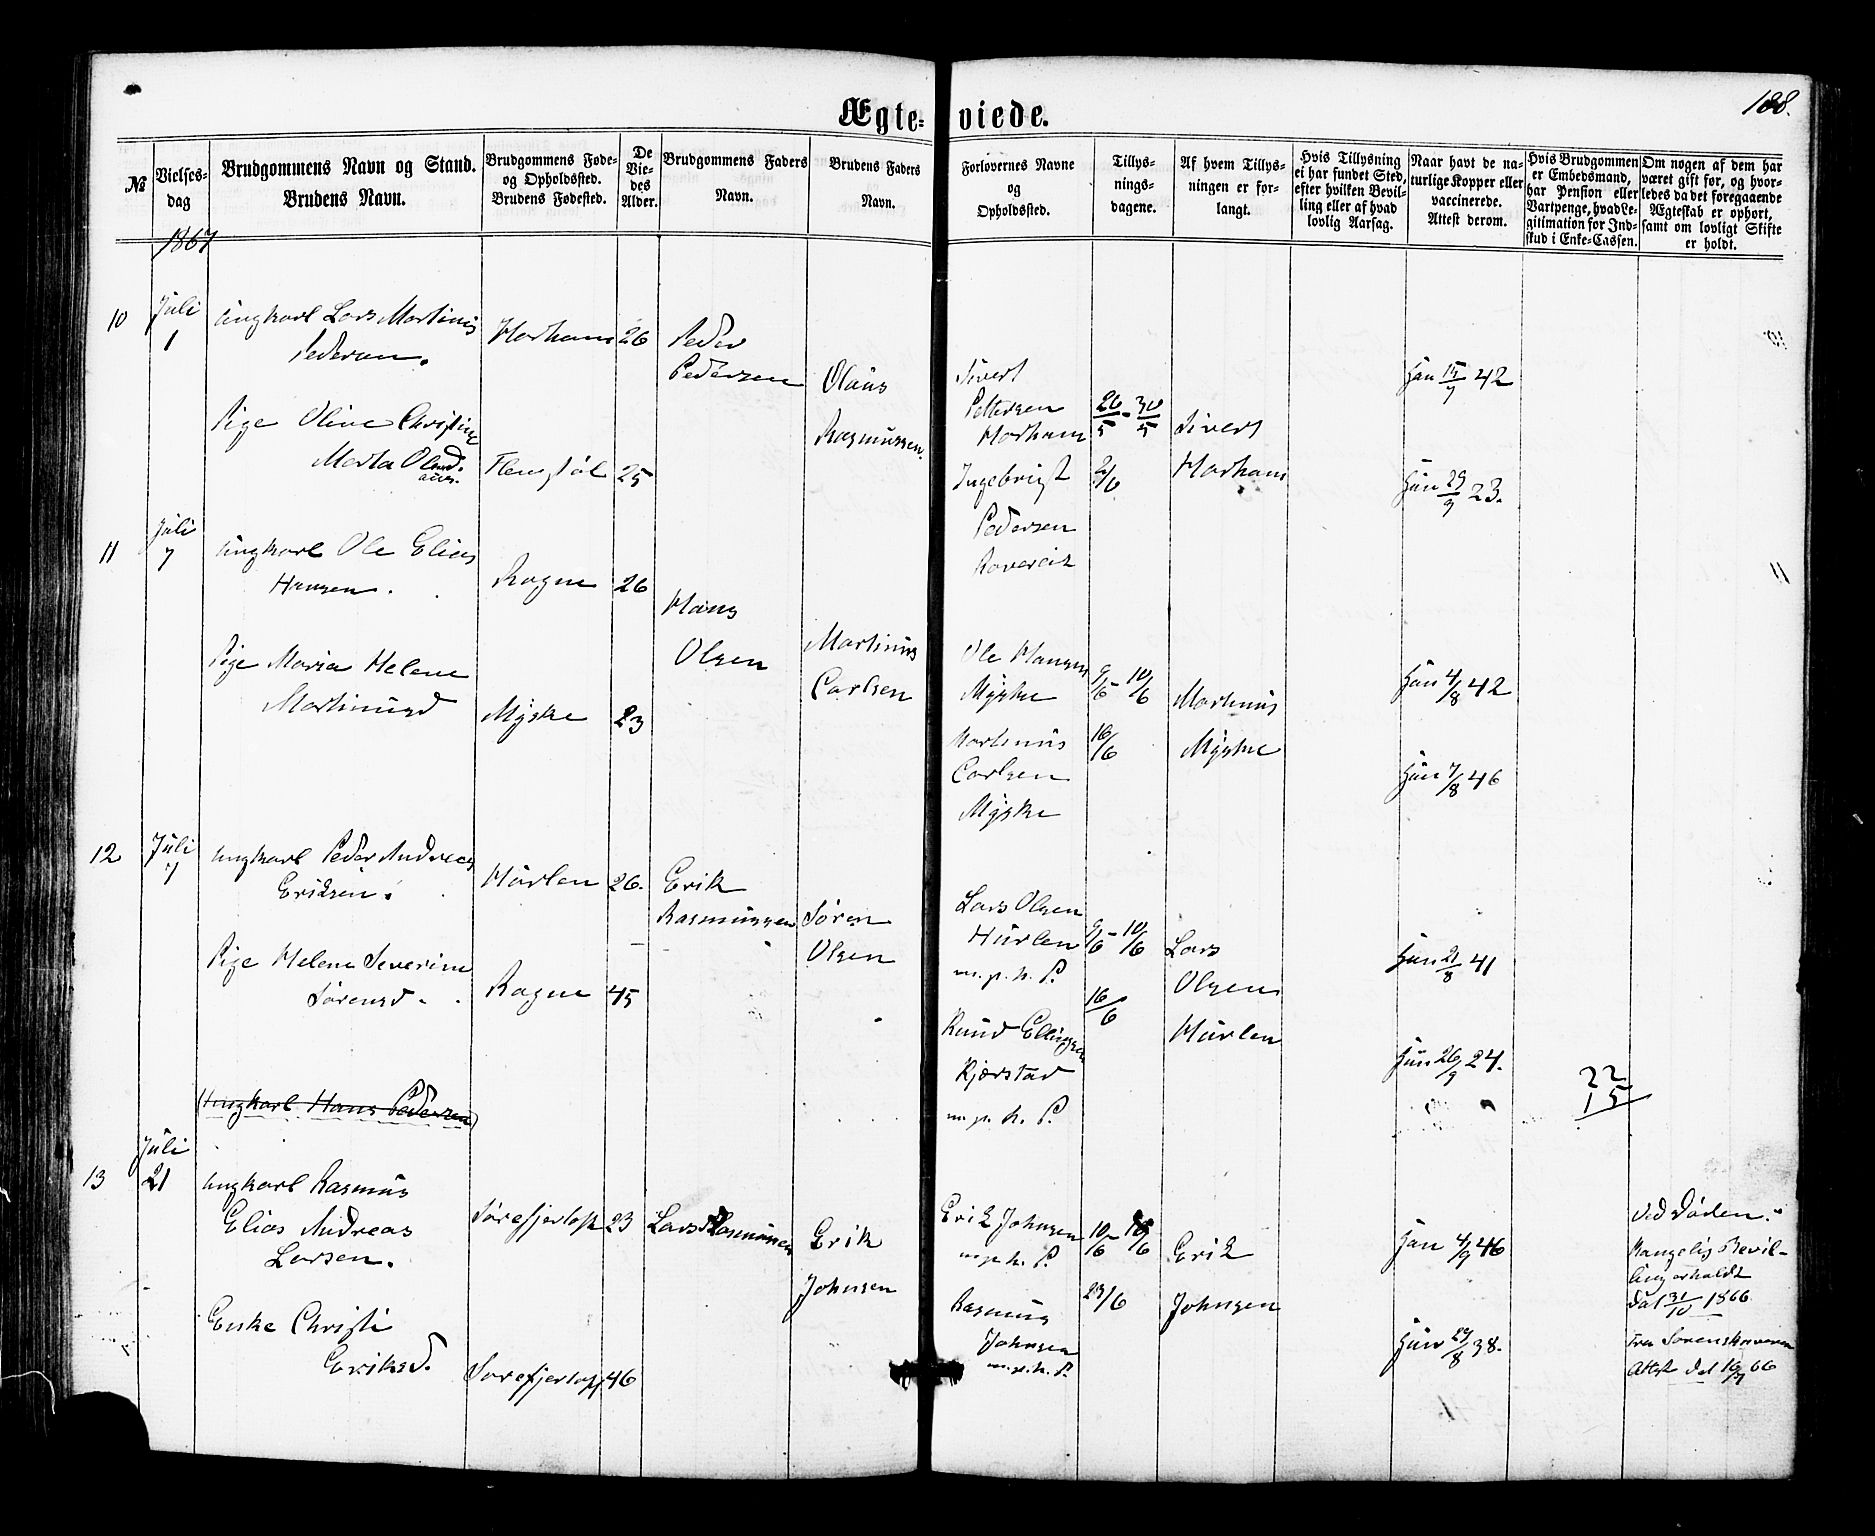 Ægte-viede.
188.
№
Vielses-
dag
Brudgommens Navn og Stand.
Brudens Navn.
Brudgommens Føde-
og Opholdssted.
Brudens Fødested.
De
Vie-
des
Alder.
Brudgommens Faders
Navn.
Brudens Faders
Navn.
Forlovernes Navne
og
Opholdssted.
Tillys-
nings-
dagene.
Af hvem Tillys-
ningen er for-
langt.
Hvis Tillysning
ei har fundet Sted,
efter hvilken Bevil-
ling eller af hvad
lovlig Aarsag.
Naar havt de na-
turlige Kopper eller
vaccinerede.
Attest derom.
Hvis Brudgommen
er Embedsmand,
har Pension eller
Vartpenge, hvad Le-
gitimation for Ind-
skud i Enke-Cassen.
Om nogen af dem har
været gift før, og hvor-
ledes da det foregaaende
Ægteskab er ophørt,
samt om lovligt Skifte
er holdt.
1867
10
Juli
1
Ungkarl Lars Martinus
Pedersen.
Harham
26
Peder
Pedersen
Pige Olive Christine
Marta Olausd.
Flemstøl
25
Olaus
Rasmussen.
Sivert
Pettersen
Harham
Ingebrigt
Pedersen
26/5 - 30/5
2/6
Sivert
Harham
Han 15/7 42
Hun 29/9 23.
11
Juli
7
Ungkarl Ole Elias
Hansen.
Rogne
26
Hans
Olsen
Pige Maria Helene
Martinusd
Myske
23
Martinus
Carlsen
Ole Hansen
Myske
Martinus
Carlsen
Myske
9/6 - 10/6
16/6
Martinus
Myske
Han 4/8 42
Hun 7/8 46
12
Juli
7
Ungkarl Peder Andreas
Eriksen.
Hurlen
26.
Erik
Rasmussen
Pige Helene Severine
Sørensd.
Rogne
45
Søren
Olsen
Lars Olsen
Hurlen
m. p. h. P.
Knud Ellingsen
Kjærstad
m. p. h. P.
9/6 - 10/6
16/6
Lars
Olsen
Hurlen
Han 21/8 41
Hun 26/9 24.
22
15
(Ungkarl Hans Pedersen)
13
Juli
21
Ungkarl Rasmus
Elias Andreas
Larsen.
Sørefjertoft
23
Lars Rasmussen
Enke Christi
Eriksd.
Sørefjertoft
46
Erik
Johnsen
Erik Johnsen
m. p. h. P.
Rasmus
Johnsen
m. p. h. P.
10/6 - 16/6
23/6
Erik
Johnsen
Han 4/9 46
Hun 29/8 38.
Ved Døden.
Kongelig Bevil-
ling erholdt
dat 31/10 1866
Fra Sorenskriveren
Attest dat 16/7 66